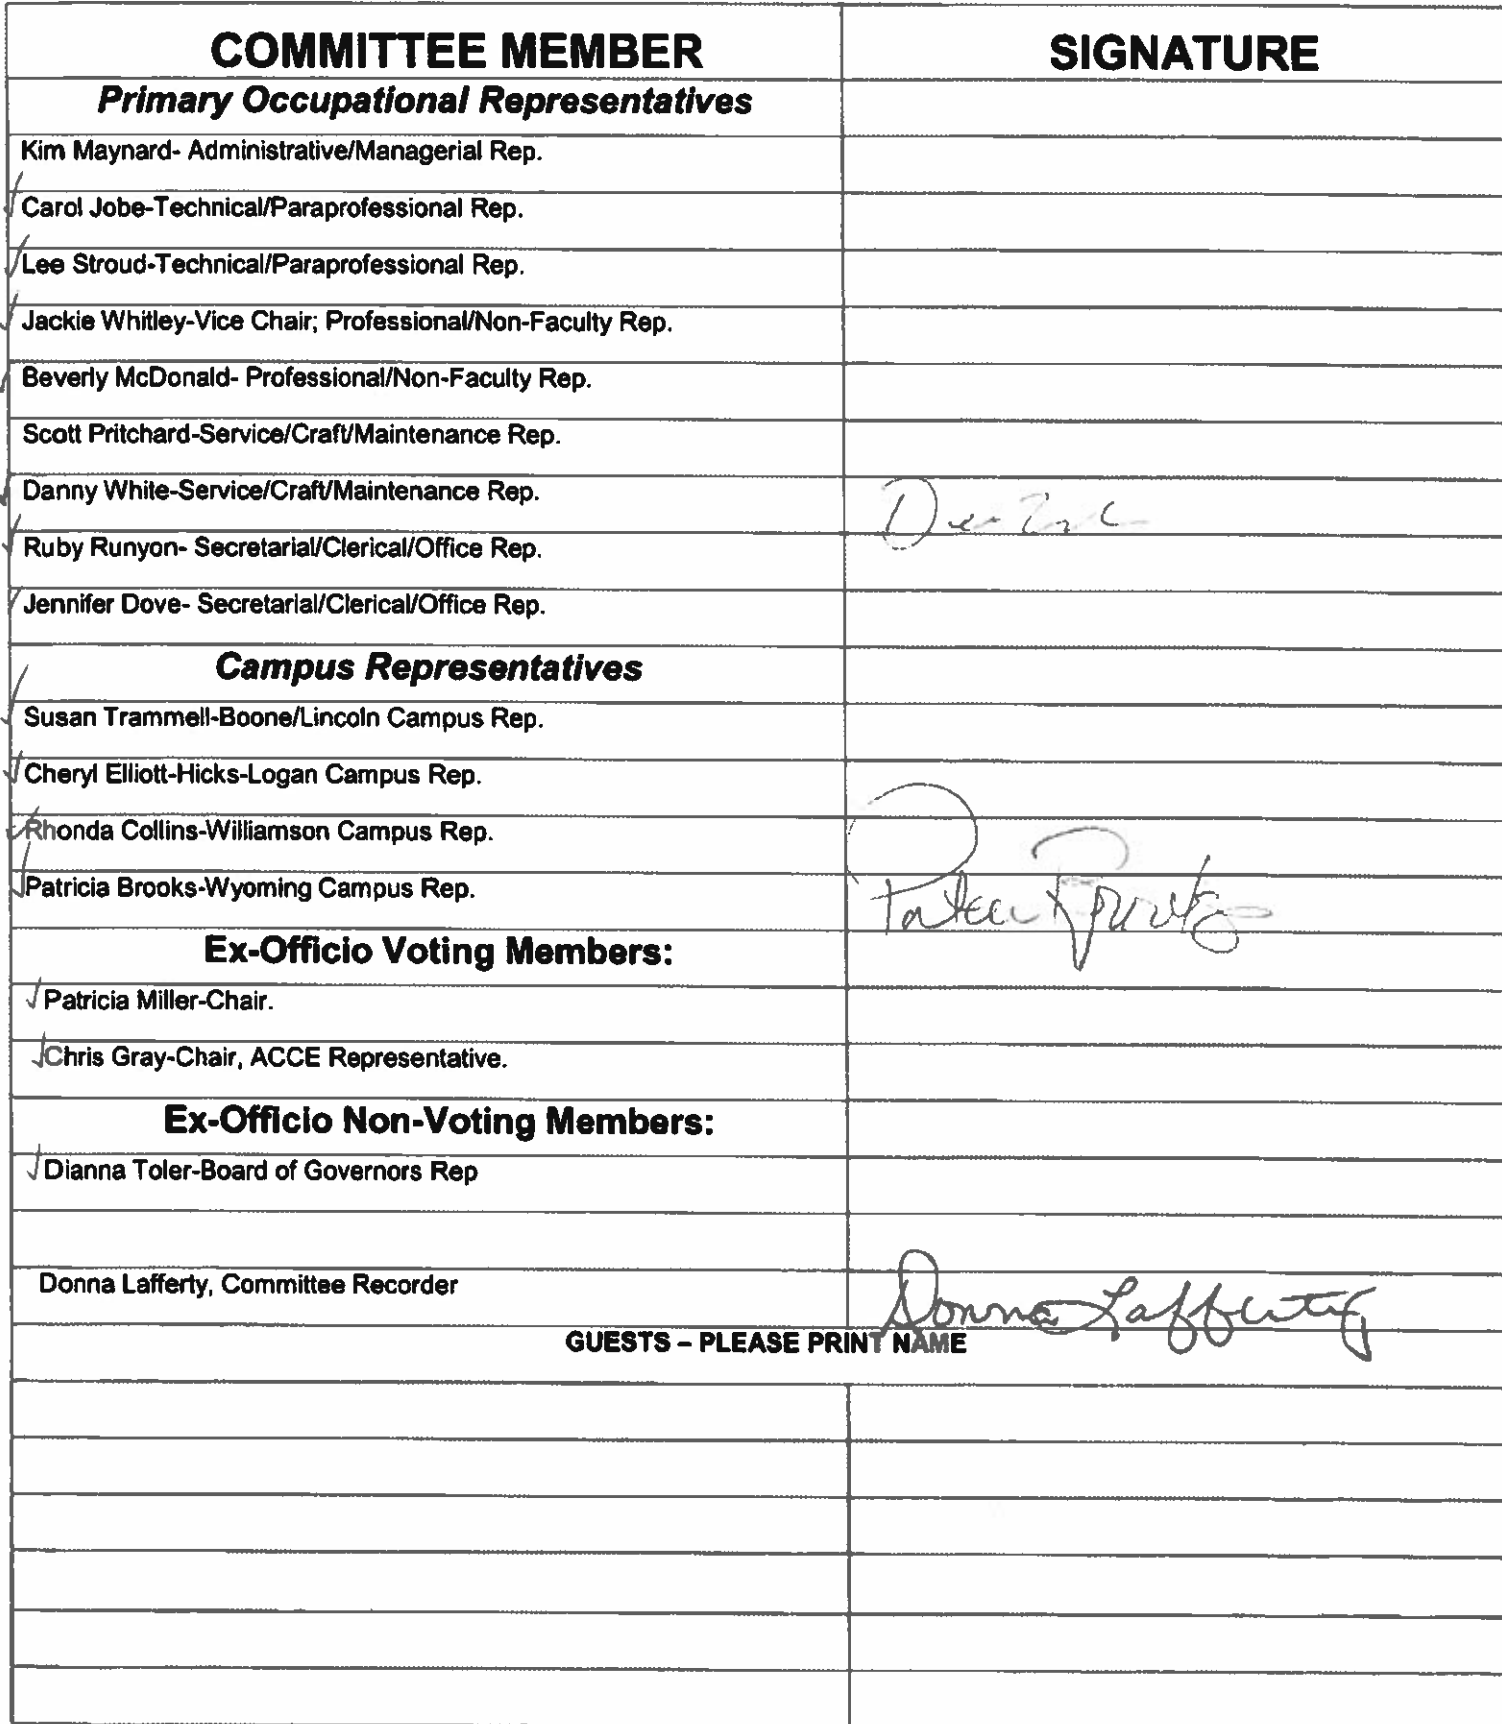 COMMITTEE MEMBER SIGNATURE
Primary Occupational Representatives
Kim Maynard- Administrative/Managerial Rep.
✓ Carol Jobe-Technical/Paraprofessional Rep.
✓ Lee Stroud-Technical/Paraprofessional Rep.
✓ Jackie Whitley-Vice Chair; Professional/Non-Faculty Rep.
✓ Beverly McDonald- Professional/Non-Faculty Rep.
Scott Pritchard-Service/Craft/Maintenance Rep.
✓ Danny White-Service/Craft/Maintenance Rep.
✓ Ruby Runyon- Secretarial/Clerical/Office Rep.
✓ Jennifer Dove- Secretarial/Clerical/Office Rep.
Campus Representatives
✓ Susan Trammell-Boone/Lincoln Campus Rep.
✓ Cheryl Elliott-Hicks-Logan Campus Rep.
✓ Rhonda Collins-Williamson Campus Rep.
✓ Patricia Brooks-Wyoming Campus Rep.
Ex-Officio Voting Members:
✓ Patricia Miller-Chair.
✓ Chris Gray-Chair, ACCE Representative.
Ex-Officio Non-Voting Members:
✓ Dianna Toler-Board of Governors Rep
Donna Lafferty, Committee Recorder Donna Lafferty
GUESTS – PLEASE PRINT NAME